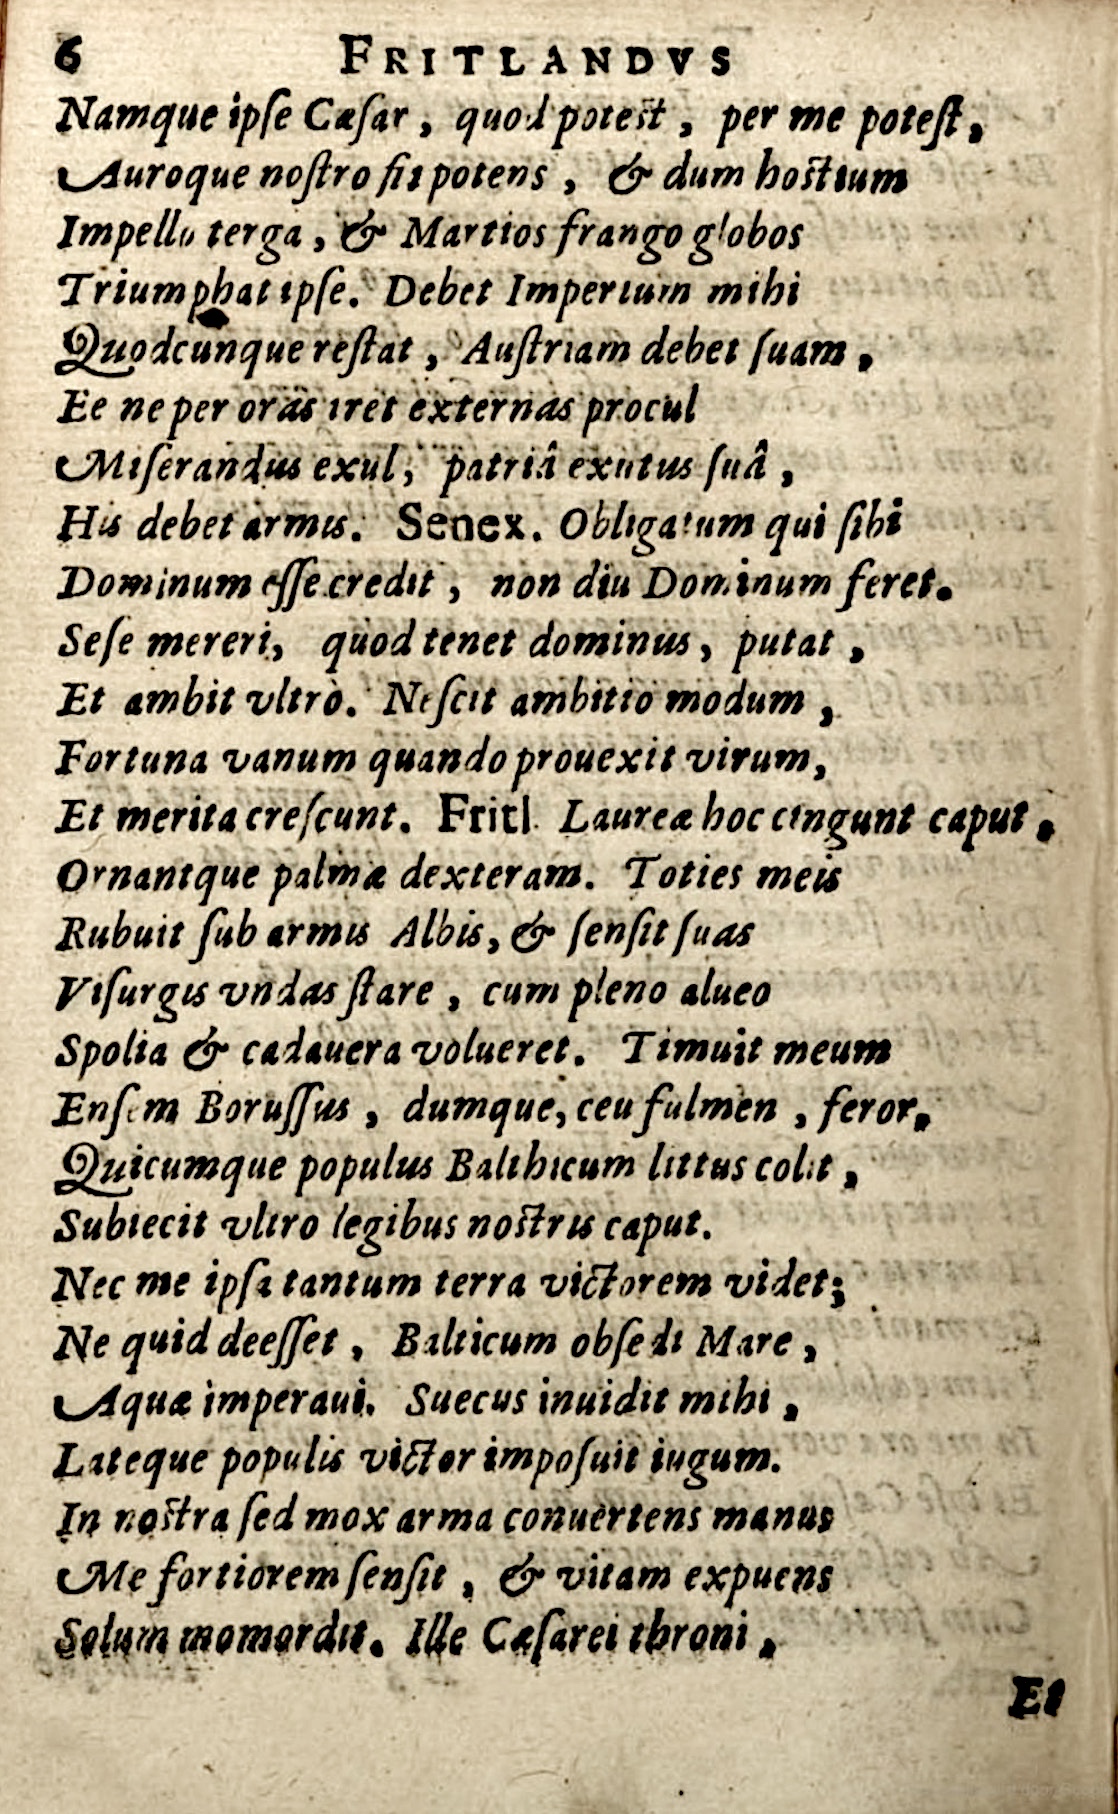 6 FRITLANDVS
Namque ipſe Cæſar, quod poteſt, per me poteſt,
Auroque noſtro fit potens, & dum hoſtium
Impello terga, & Martios frango globos
Triumphat ipſe. Debet Imperium mihi
Quodcunque reſtat, Auſtriam debet ſuam,
Ee ne per oras iret externas procul
Miſerandus exul, patriâ exutus ſuâ,
His debet armis. Senex. Obligatum qui ſibi
Dominum eſſe credit, non diu Dominum feret.
Seſe mereri, quod tenet dominus, putat,
Et ambit vltrò. Neſcit ambitio modum,
Fortuna vanum quando prouexit virum,
Et merita creſcunt. Fritl. Laureæ hoc cingunt caput,
Ornantque palmæ dexteram. Toties meis
Rubuit ſub armis Albis, & ſenſit ſuas
Viſurgis vndas ſtare, cum pleno alueo
Spolia & cadauera volueret. Timuit meum
Enſem Boruſſus, dumque, ceu fulmen, feror,
Quicumque populus Balthicum littus colit,
Subiecit vltro legibus noſtris caput.
Nec me ipſa tantum terra victorem videt;
Ne quid deeſſet, Balticum obſedi Mare,
Aquæ imperaui. Suecus inuidit mihi,
Lateque populis victor impoſuit iugum.
In noſtra ſed mox arma conuertens manus
Me fortiorem ſenſit, & vitam expuens
Solum momordit. Ille Cæſarei throni,
Et